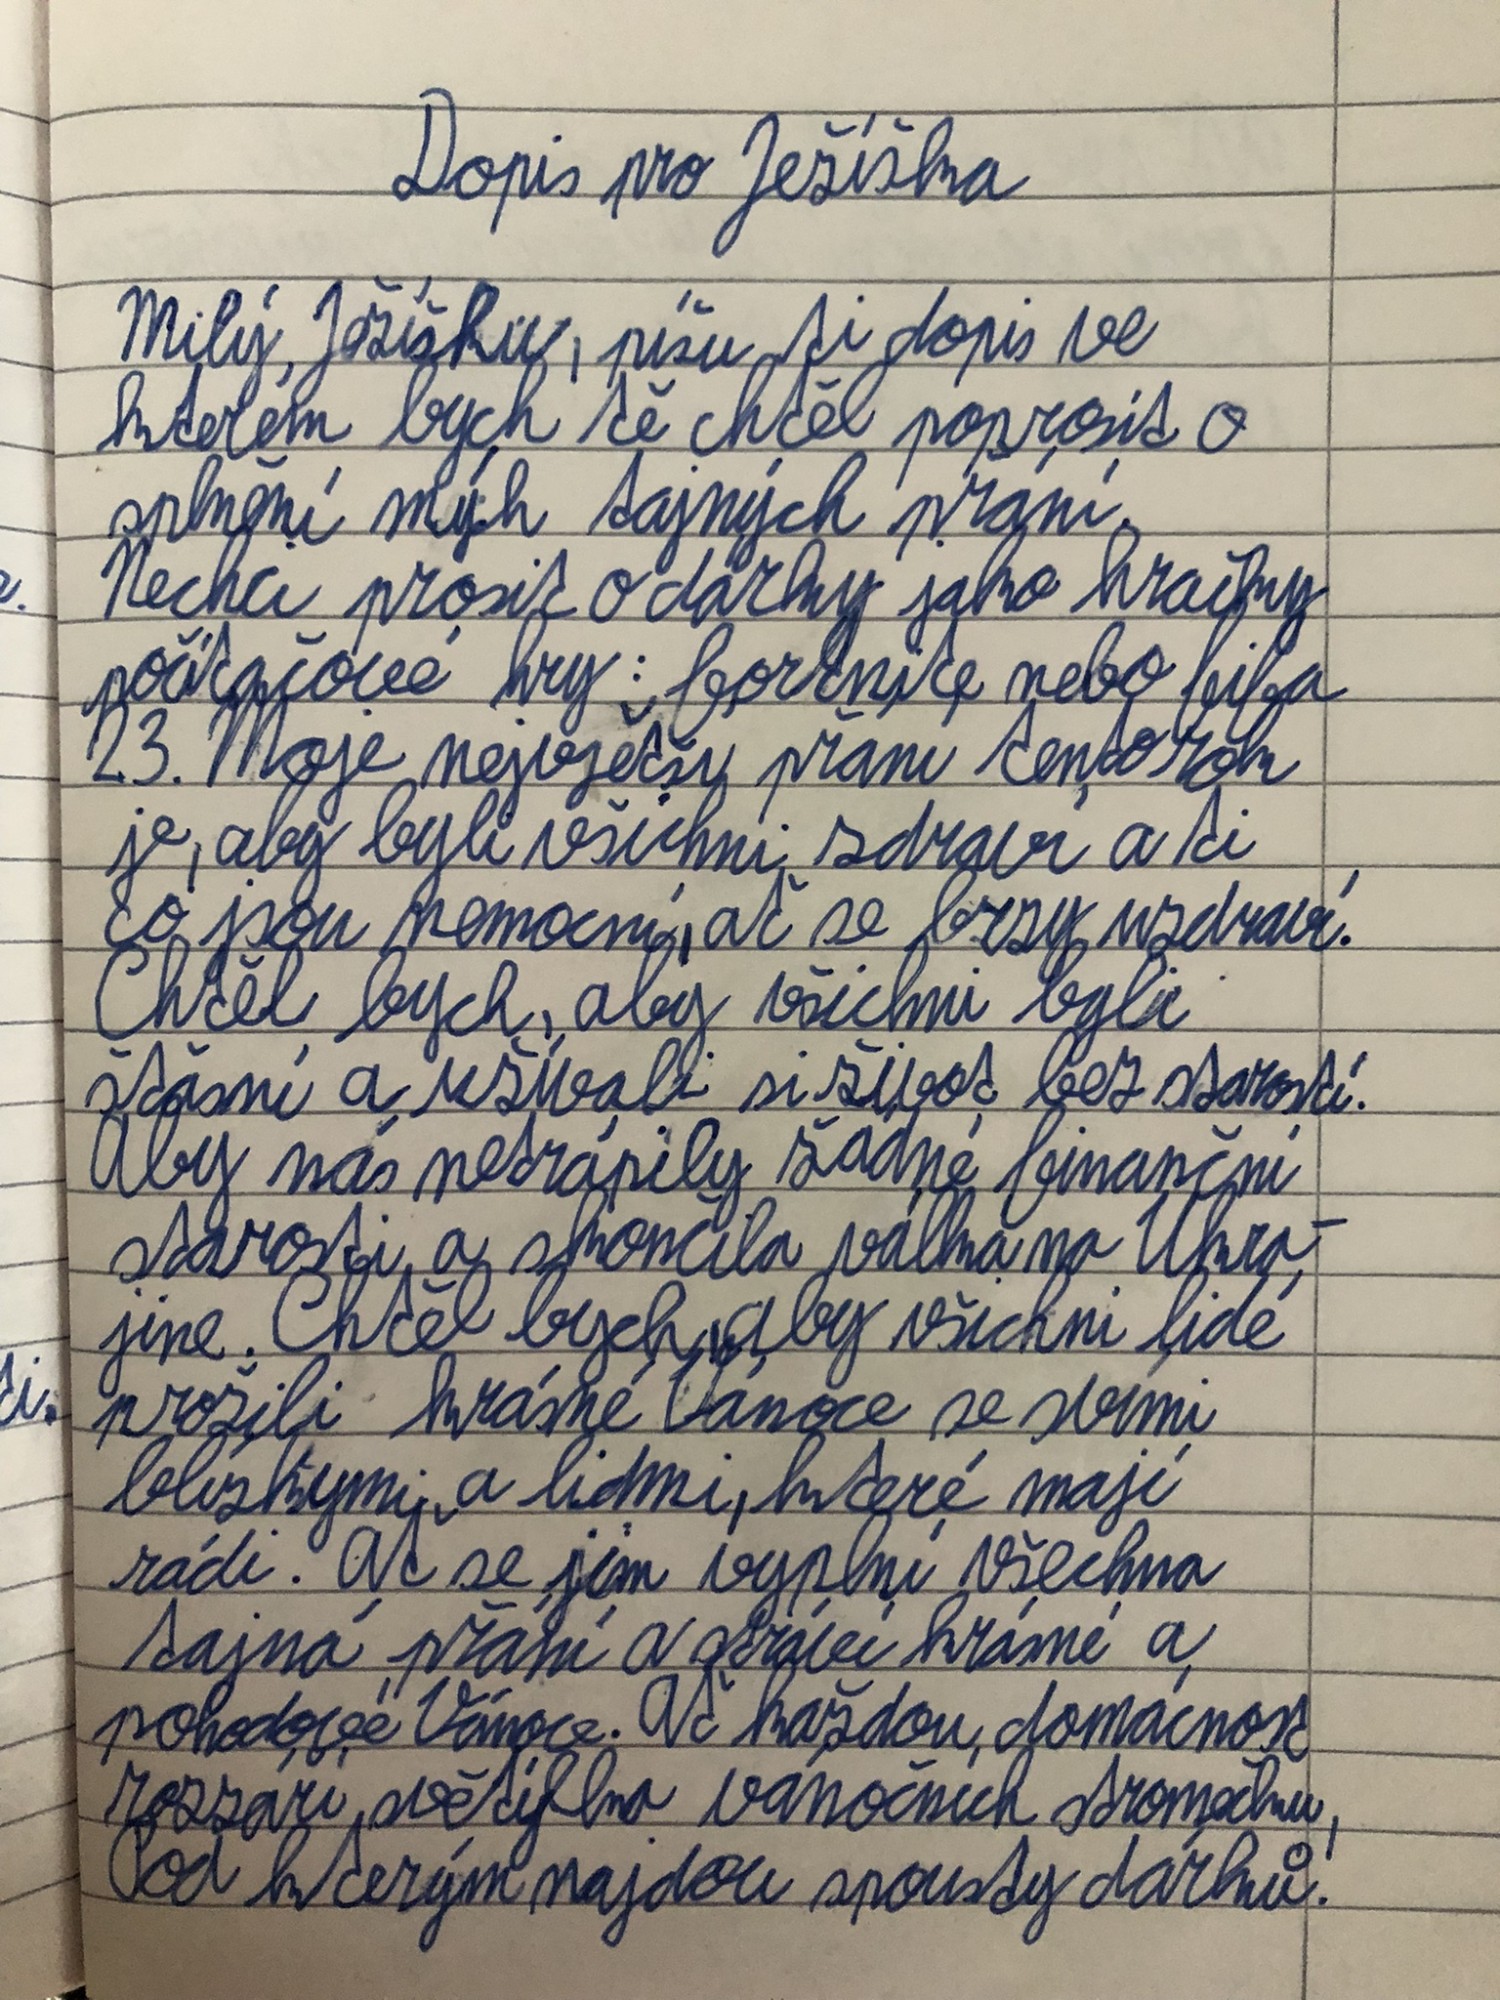 Dopis pro Ježíška
Milý, Ježíšku, píšu ti dopis ve
kterém bych tě chtěl poprosit o
splnění mých tajných přání.
Nechci prosit o dárky jako hračky
počítačové hry: fortnite nebo fifa
23. Moje nejvjětší přání tento rok
je, aby byli všichni zdraví a ti
co jsou nemocní, ať se brzy uzdraví.
Chtěl bych, aby všichni byli
štásní a užívali si život bez starostí.
Aby nás netrápily žádné finanční
starosti a skončila válka na Ukra-
jine. Chtěl bych, aby všichni lidé
prožili krásné Vánoce se svími
blízkými a lidmi, které mají
rádi. Ať se jim vyplní všechna
tajná přání a stráví krásné a
pohodové Vánoce. Ať každou domácnost
rozzáří světýlka vánočních stromečku,
Pod kterým najdou spousty dárků.
a.
ti.